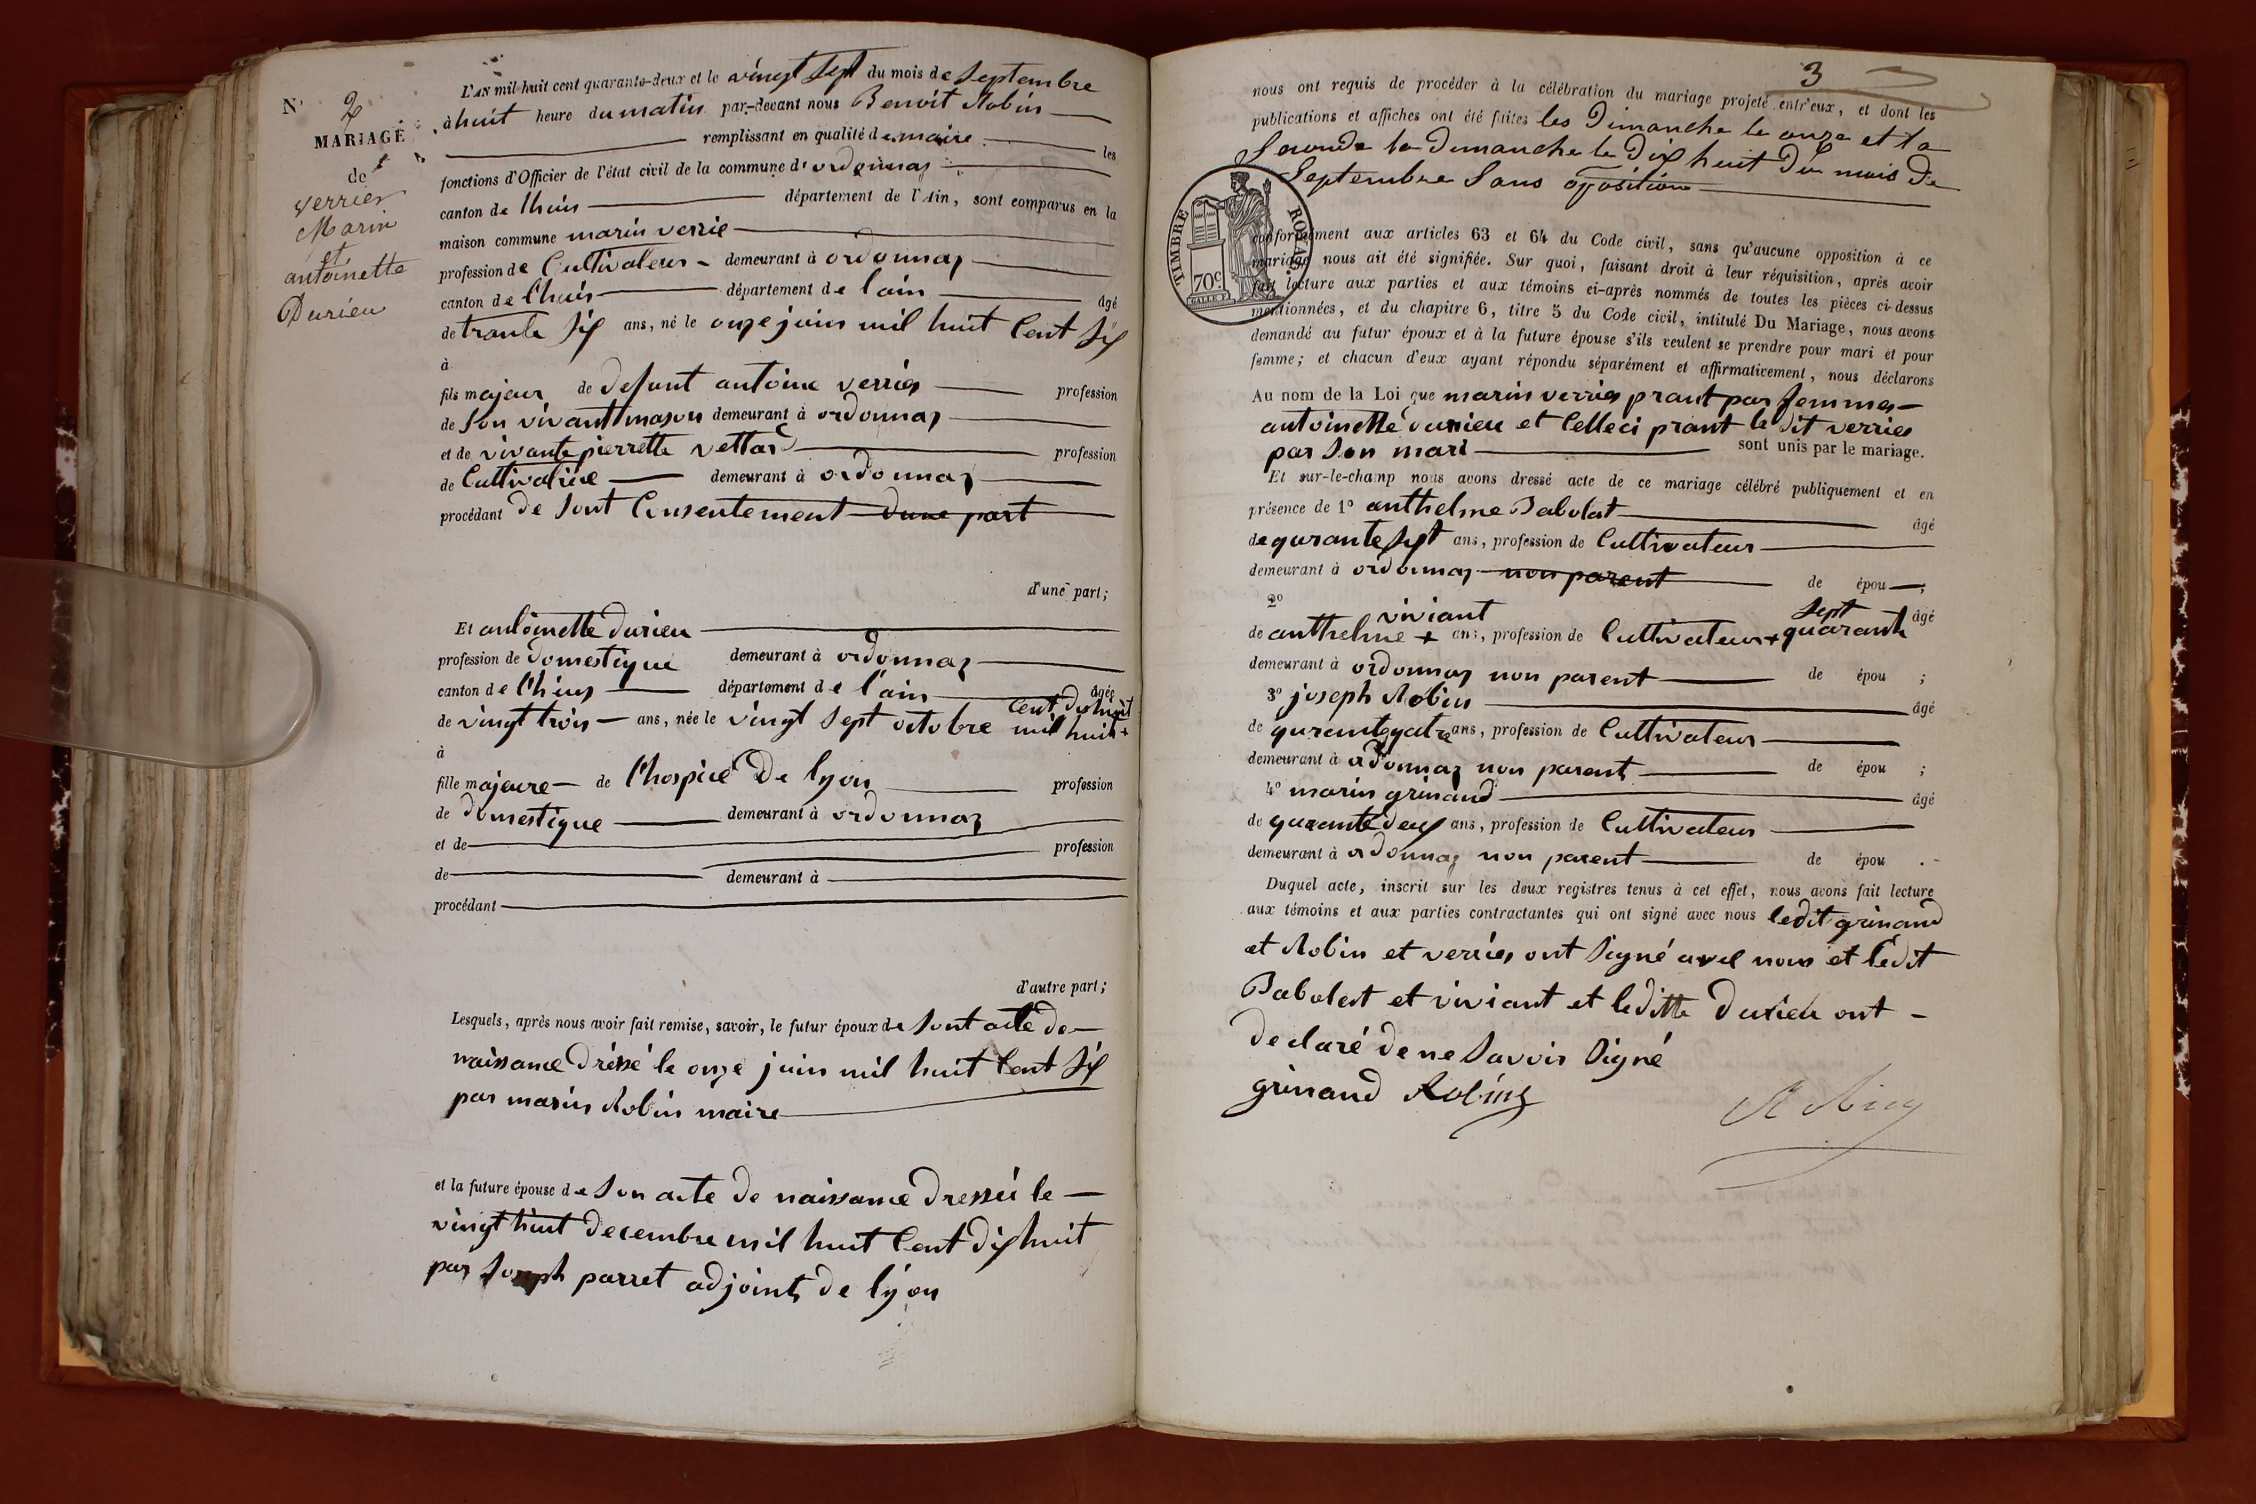 N° 2
MARIAGE
de
verrier
Marin
et
antoinette
Durieu
L'AN mil huit cent quarante-deux et le vingt sept du mois de septembre
à huit heure du matin par-devant nous Benoit Robin
remplissant en qualité de maire les
fonctions d'Officier de l'état civil de la commune d'ordonnaz
canton de lhuis département de l'Ain, sont comparus en la
maison commune marin verrie
profession de Cultivateur demeurant à ordonnaz
canton de lhuis département de l'ain âgé
de trante six ans, né le onze juin mil huit Cent six
à
fils majeur de defunt antoine verrier profession
de son vivant mason demeurant à ordonnaz
et de vivante pierrette vettard profession
de Cultivatrice demeurant à ordonnaz
procédant de sont Consentement dune part
d'une part;
Et antoinette durieu
profession de domestique demeurant à ordonnaz
canton de lhuis département de l'ain âgée
cent dix huit
de vingt trois ans, née le vingt sept octobre mil huit +
à
fille majeure de l'hospice De lyon profession
de domestique demeurant à ordonnaz
et de profession
de demeurant à
procédant
d'autre part;
Lesquels, après nous avoir fait remise, savoir, le futur époux de sont acte de
naissance Dréssé le onze juin mil huit Cent six
par marin Robin maire
et la future épouse de son acte de naissance Dresséi le
vingt huit decembre mil huit Cent dix huit
par Joseph parret adjoint de lyon
3
nous ont requis de procéder à la célébration du mariage projeté entr'eux, et dont les
publications et affiches ont été faites les Dimanche le onze et la
seconde le Dimanche le Dix huit Du mois De
Septembre sans oposition
TIMBRE ROYAL
70c.
conformément aux articles 63 et 64 du Code civil, sans qu'aucune opposition à ce
mariage nous ait été signifiée. Sur quoi, faisant droit à leur réquisition, après avoir
fait lecture aux parties et aux témoins ci-après nommés de toutes les pièces ci-dessus
mentionnées, et du chapitre 6, titre 5 du Code civil, intitulé Du Mariage, nous avons
demandé au futur époux et à la future épouse s'ils veulent se prendre pour mari et pour
femme; et chacun d'eux ayant répondu séparément et affirmativement, nous déclarons
Au nom de la Loi que marin verrier prant par femmes
antoinette durieu et Celleci prant le Dit verrier
par son mari sont unis par le mariage.
Et sur-le-champ nous avons dressé acte de ce mariage célébré publiquement et en
présence de 1° anthelme Babolat âgé
de qurante sept ans, profession de Cultivateur
demeurant à ordonnaz non parent de épou ;
2° viviant sept âgé
de anthelme + ans, profession de Cultivateur + quarante
demeurant à ordonnaz non parent de épou ;
3° joseph Robin âgé
de qurante quatre ans, profession de Cultivateur
demeurant à ordonnaz non parent de épou ;
4° marin grinand âgé
de qurante deux ans, profession de Cultivateur
demeurant à ordonnaz non parent de épou .
Duquel acte, inscrit sur les deux registres tenus à cet effet, nous avons fait lecture
aux témoins et aux parties contractantes qui ont signé avec nous ledit grinand
et Robin et verrier ont signé avec nous et ledit
Babolat et viviant et leditte Durieu ont
declaré de ne savoir signé
grinand Robin
Robin